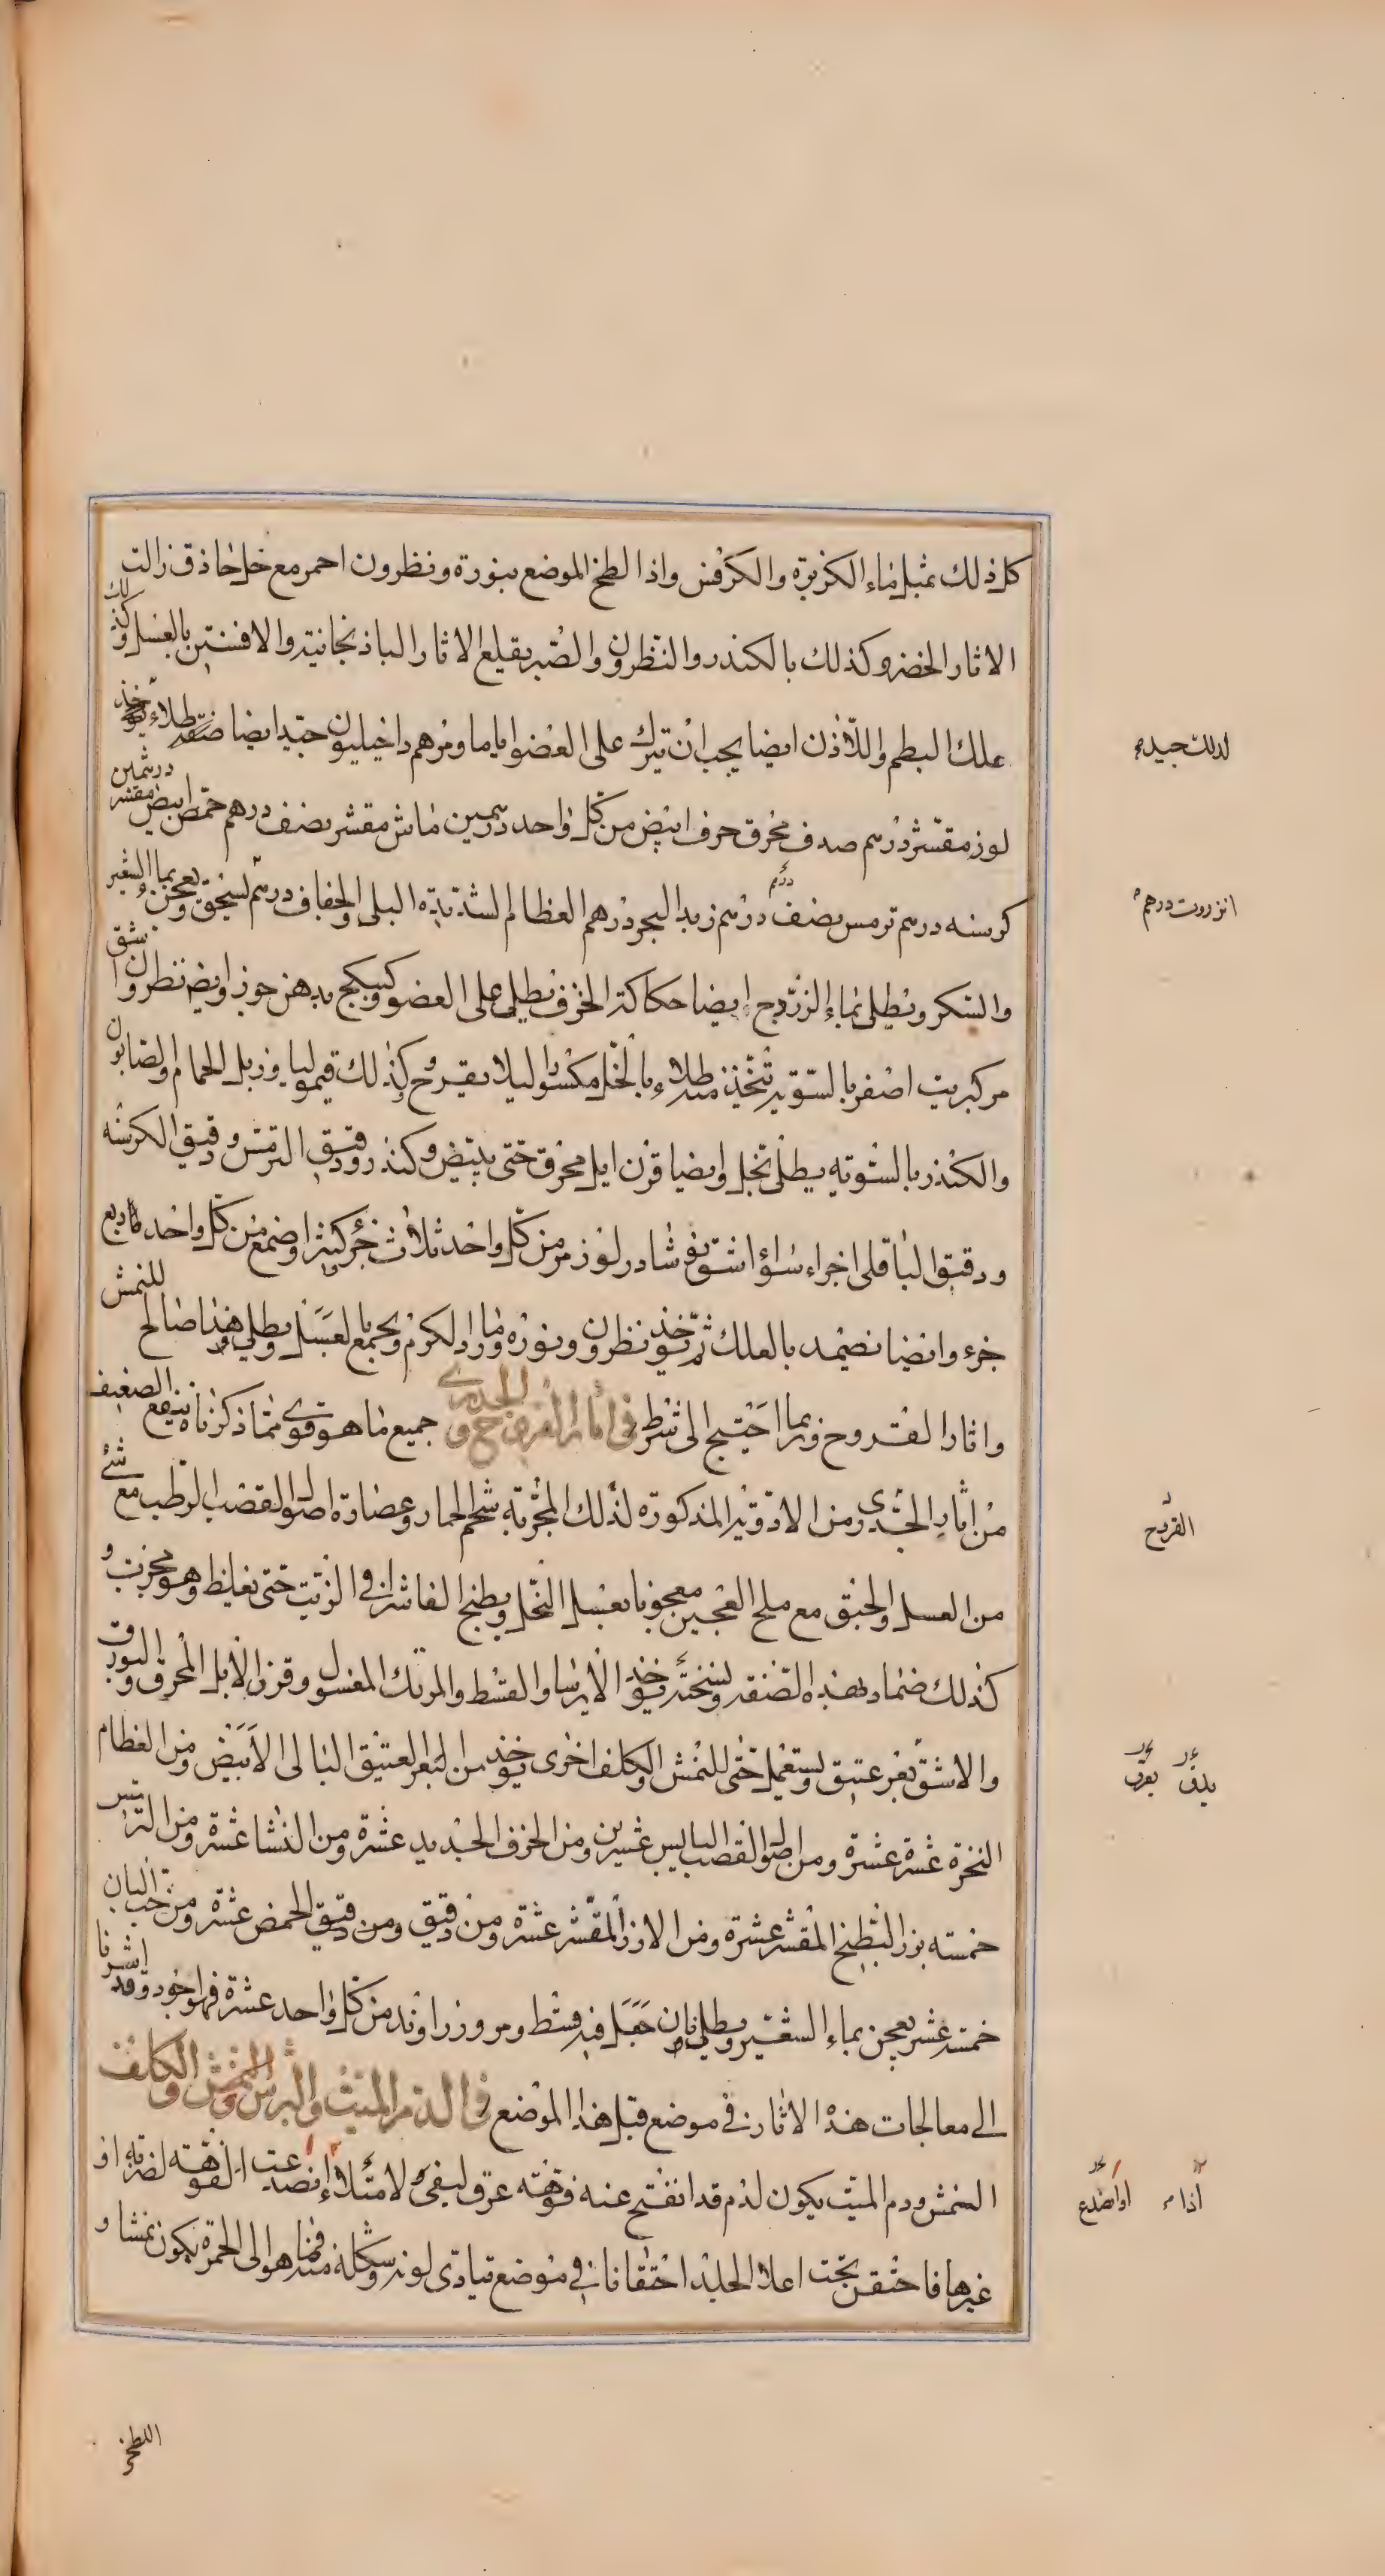 كل ذلك بمثل ماء الكزبرة والكرفس واذا لطخ الموضع بنورة ونطرون احمر مع خل حاذق زالت
الاثار الخضر وكذلك بالكندر والنطرون والصبر يقلع الاثار الباذنجانية والافسنتين بالعسل وكذلك
علك البطم واللاذن ايضا يجب ان تترك على العضو اياما ومرهم داخيليون جيد ايضا صنعة طلاء يؤخذ
لوز مقشر درهم صدف محرق حرف ابيض من كل واحد درهمين ماش مقشر نصف درهم حمص ابيض مقشر درهمين
كرسنه درهم ترمس نصف درهم زبد البحر درهم العظام الشديدة البلى والجفاف درهم يسحق ويعجن بماء الشعير
والسكر ويطلى بماء الزردج ايضا حكاكة الخزف يطلى على العضو وكسكبج بدهن جوز وايضا نطرون اشق
مر كبريت اصفر بالسوية تتخذ منه طلاء بالخل مكسورا ليلا يقرح وكذلك قيموليا وزبل الحمام والصابون
والكندر بالسوية يطلى بخل وايضا قرن ايل محرق حتى يبيض وكندر ودقيق الترمس ودقيق الكرسنه
ودقيق الباقلى اجزاء سواء اشق نوشادر لوز مر من كل واحد ثلاث جزء كثيرا وصمغ من كل واحد ربع
جزء وايضا تضمد بالعلك ثم تؤخذ نطرون ونورة ورماد الكرم ويجمع بالعسل ويطلى وهذا صالح للنمش
واثار القروح وربما احتيج الى شرط في اثار القروح والجدري جميع ما هو قوي مما ذكرناه ينفع الضعيف
من اثار الجدري ومن الادوية المذكورة لذلك المجربة شحم الحمار وعصارة اصول القصب الرطب مع شئ
من العسل والحبق مع ملح العجين معجونا بعسل النحل ويطبخ الفاشرا في الزيت حتى يغلظ وهو مجرب و
كذلك ضماد بهذه الصفة ونسخته يؤخذ الايرسا والقسط والمرتك المغسول وقرن الايل المحرق والبورق
والاشق بعر عتيق ويستعمل حتى للنمش والكلف اخرى يؤخذ من البعر العتيق البالى الابيض ومن العظام
النخرة عشرة عشرة ومن اصول القصب اليابس عشرين ومن الخزف الجديد عشرة ومن النشا عشرة ومن الترمس
خمسة بزر البطيخ المقشر عشرة ومن الارز المقشر عشرة ومن دقيق ومن دقيق الحمص عشرة ومن حب البان
خمسة عشر يعجن بماء الشعير ويطلى فان جعل فيه قسط ومر وزراوند من كل واحد عشرة فهو اجود وقد اشرنا
الى معالجات هذه الاثار في موضع قبل هذا الموضع في الدم الميت والبرش والنمش والكلف
النمش ودم الميت يكون لدم قد انفتح عنه فوهته عرق ليفي لامتلاء انصدعت الفوهة لضربة او
غيرها فاحتقن تحت اعلا الجلد احتقانا في موضع تتأدى لونه وشكله منه فما هو الى الحمرة يكون نمشا و
لدلك جيد م
انزروت درهم
القروح
يدق بعرق
اذا م او انصدع
اللطخ